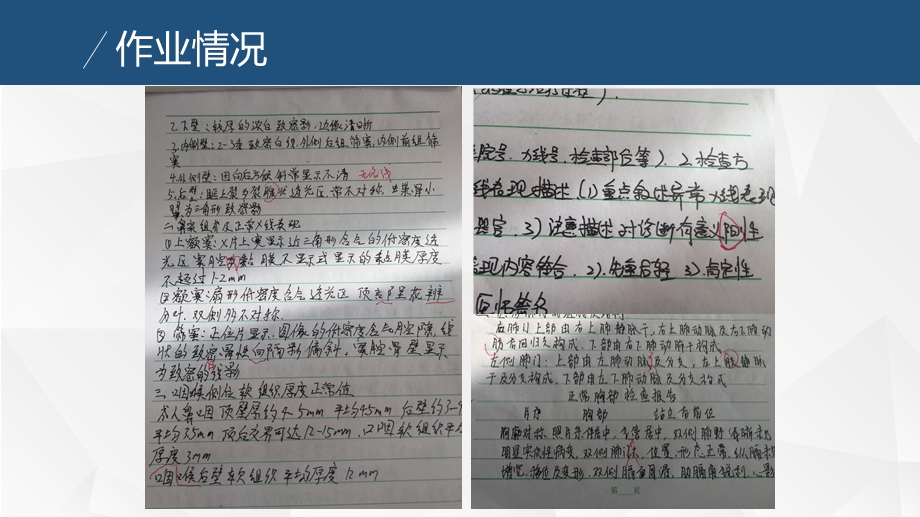 作业情况
2.下壁：较厚的浓白致密影，边缘清晰
3.内侧壁：2-3条致密白线，外侧后组筛窦，内侧前组筛
窦
4.外侧壁：因向后方倾斜常显示不清
5.后壁：眶上裂为裂隙状透光区，常不对称，
翼为三角形致密影
二、鼻窦组术及正常X线表现
①上颌窦：X片上窦显示近三角形含气的低密度透
光区，窦腔粘膜不显示或显示的粘膜厚度
不超过1-2mm
②额窦：扇形低密度含气透光区，顶部呈花瓣
分叶，双侧多不对称.
③筛窦：正位片显示：图像的低密度含气腔隙，线
状的致密
为致密的线影
三、口咽标侧位软组织厚度正常值
顶壁厚约4-5mm 平均4.5mm 后壁约
平均3.5mm 顶后交界可达12-15mm，口咽软组织平
厚度3mm
口咽口喉后壁软组织平均厚度12mm
院号、方线号、检查部位等）. 2.检查方
线表现描述.（1）重点叙述异常X线表现
器官. 3）注意描述对诊断有意义阳性
表现内容结合. 2）先重后轻 3）肯定性
回归签名
右肺门上部由右上肺静脉干，右上肺动脉及右下肺动
脉后回归支构成，下部由右下肺动脉干构成
左侧肺门：上部由左肺动脉及分支，左上肺静脉
干及分支构成，下部由左下肺动脉及分支构成
正常胸部检查报告
片序 胸部 站立后前位
胸廓对称，照片条件居中，气管居中，双侧肺野清晰未见
明显实质性病变，双侧肺门，位置、形态正常，纵膈未
增宽、移位及变形，双侧膈面圆滑，肋膈角锐利，心影
第 页